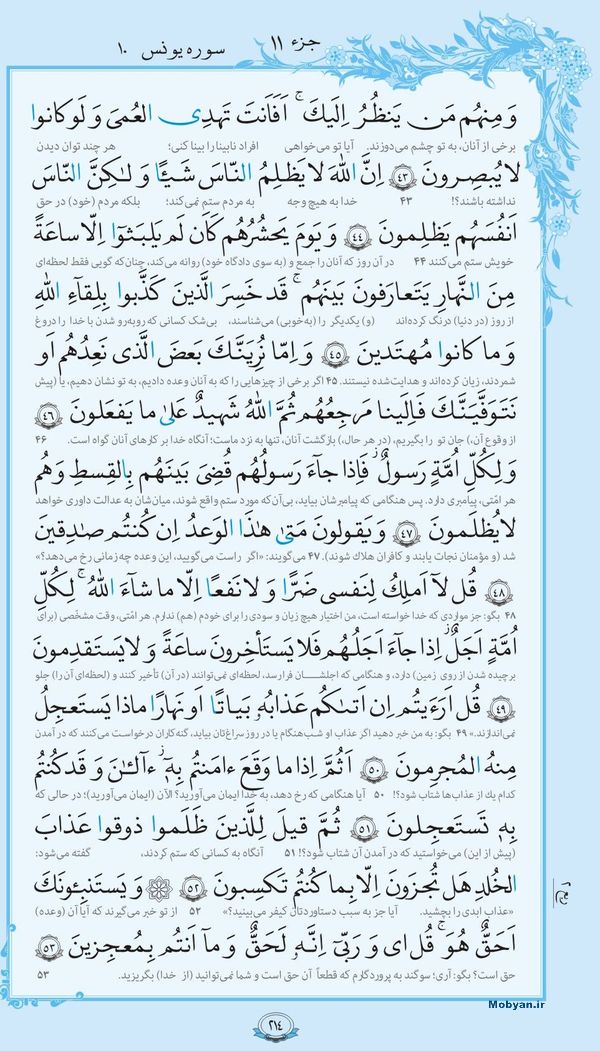 جزء ۱۱ سوره یونس ۱۰
وَ مِنهُم مَن یَنظُرُ اِلَیكَ ۚ اَفَاَنتَ تَهدِی العُمیَ وَ لَو كانوا
برخی از آنان، به تو چشم می‌دوزند. آیا تو می‌خواهی افراد نابینا را بینا کنی؛ هر چند توان دیدن
لایُبصِرونَ ﴿۴۳﴾ اِنَّ اللهَ لایَظلِمُ النّاسَ شَیـًٔا وَ لٰكِنَّ النّاسَ
نداشته باشند؟! ۴۳ خدا به هیچ وجه به مردم ستم نمی‌کند؛ بلکه مردم (خود) در حق
اَنفُسَهُم یَظلِمونَ ﴿۴۴﴾ وَ یَومَ یَحشُرُهُم كَاَن لَم یَلبَثوا اِلّا ساعَةً
خویش ستم می‌کنند ۴۴ در آن روز که آنان را جمع و (به سوی دادگاه خود) روانه می‌کند، چنان‌که گویی فقط لحظه‌ای
مِنَ النَّهارِ یَتَعارَفونَ بَینَهُم ۚ قَد خَسِرَ الَّذینَ كَذَّبوا بِلِقاءِ اللهِ
از روز (در دنیا) درنگ کرده‌اند (و) یکدیگر را (به‌خوبی) می‌شناسند، بی‌شک کسانی که روبه‌رو شدن با خدا را دروغ
وَ ما كانوا مُهتَدینَ ﴿۴۵﴾ وَ اِمّا نُرِیَنَّكَ بَعضَ الَّذی نَعِدُهُم اَو
شمردند، زیان کرده‌اند و هدایت‌شده نیستند. ۴۵ اگر برخی از چیزهایی را که به آنان وعده دادیم، به تو نشان دهیم، یا (پیش
نَتَوَفَّیَنَّكَ فَاِلَینا مَرجِعُهُم ثُمَّ اللهُ شَهیدٌ عَلیٰ ما یَفعَلونَ ﴿۴۶﴾
از وقوع آن،) جان تو را بگیریم، (در هر حال،) بازگشت آنان، تنها به نزد ماست؛ آنگاه خدا بر کارهای آنان گواه است. ۴۶
وَ لِكُلِّ اُمَّةٍ رَسولٌ ۖ فَاِذا جاءَ رَسولُهُم قُضِیَ بَینَهُم بِالقِسطِ وَ هُم
هر امّتی، پیامبری دارد. پس هنگامی که پیامبرشان بیاید، بی‌آن‌که مورد ستم واقع شوند، میان‌شان به عدالت داوری خواهد
لایُظلَمونَ ﴿۴۷﴾ وَ یَقولونَ مَتیٰ هٰذَا الوَعدُ اِن كُنتُم صادِقینَ
شد (و مؤمنان نجات یابند و کافران هلاک شوند). ۴۷ می‌گویند: «اگر راست می‌گویید، این وعده چه‌زمانی رخ می‌دهد؟»
﴿۴۸﴾ قُل لا اَملِكُ لِنَفسی ضَرًّا وَ لا نَفعًا اِلّا ما شاءَ اللهُ ۗ لِكُلِّ
۴۸ بگو: جز مواردی که خدا خواسته است، من اختیار هیچ زیان و سودی را برای خودم (هم) ندارم. هر امّتی، وقت مشخّصی (برای
اُمَّةٍ اَجَلٌ ۚ اِذا جاءَ اَجَلُهُم فَلا یَستَأخِرونَ ساعَةً وَ لا یَستَقدِمونَ
برچیده شدن از روی زمین) دارد، و هنگامی که اجلشان فرا رسد، لحظه‌ای نمی‌توانند (در آن) تأخیر کنند و (لحظه‌ای آن را) جلو
﴿۴۹﴾ قُل اَرَءَیتُم اِن اَتىٰكُم عَذابُهُ بَیاتًا اَو نَهارًا ماذا یَستَعجِلُ
نمی‌اندازند.» ۴۹ بگو: به من خبر دهید اگر عذاب او شب‌هنگام یا در روز سراغ‌تان بیاید، گنه‌کاران درخواست می‌کنند که در آمدن
مِنهُ المُجرِمونَ ﴿۵۰﴾ اَثُمَّ اِذا ما وَقَعَ ءامَنتُم بِه ۚ ءآلـٰٔنَ وَ قَد كُنتُم
کدام یک از عذاب‌ها شتاب شود؟! ۵۰ آیا هنگامی که رخ دهد، به خدا ایمان می‌آورید؟ الآن (ایمان می‌آورید)؛ در حالی که
بِه تَستَعجِلونَ ﴿۵۱﴾ ثُمَّ قیلَ لِلَّذینَ ظَلَموا ذوقوا عَذابَ
(پیش از این) می‌خواستید که در آمدن آن شتاب شود؟! ۵۱ آنگاه به کسانی که ستم کردند، گفته می‌شود:
الخُلدِ هَل تُجزَونَ اِلّا بِما كُنتُم تَكسِبونَ ﴿۵۲﴾ ۞ وَ یَستَنبِـٔونَكَ
«عذاب ابدی را بچشید. آیا جز به سبب دستاوردتان کیفر می‌بینید؟» ۵۲ از تو خبر می‌گیرند که آیا آن (وعده)
اَحَقٌّ هُوَ ۖ قُل ای وَ رَبّی اِنَّهُ لَحَقٌّ ۖ وَ ما اَنتُم بِمُعجِزینَ ﴿۵۳﴾
حق است؟ بگو: آری؛ سوگند به پروردگارم که قطعاً آن حق است و شما نمی‌توانید (از خدا) بگریزید. ۵۳
Mobyan.ir
۲۱۴